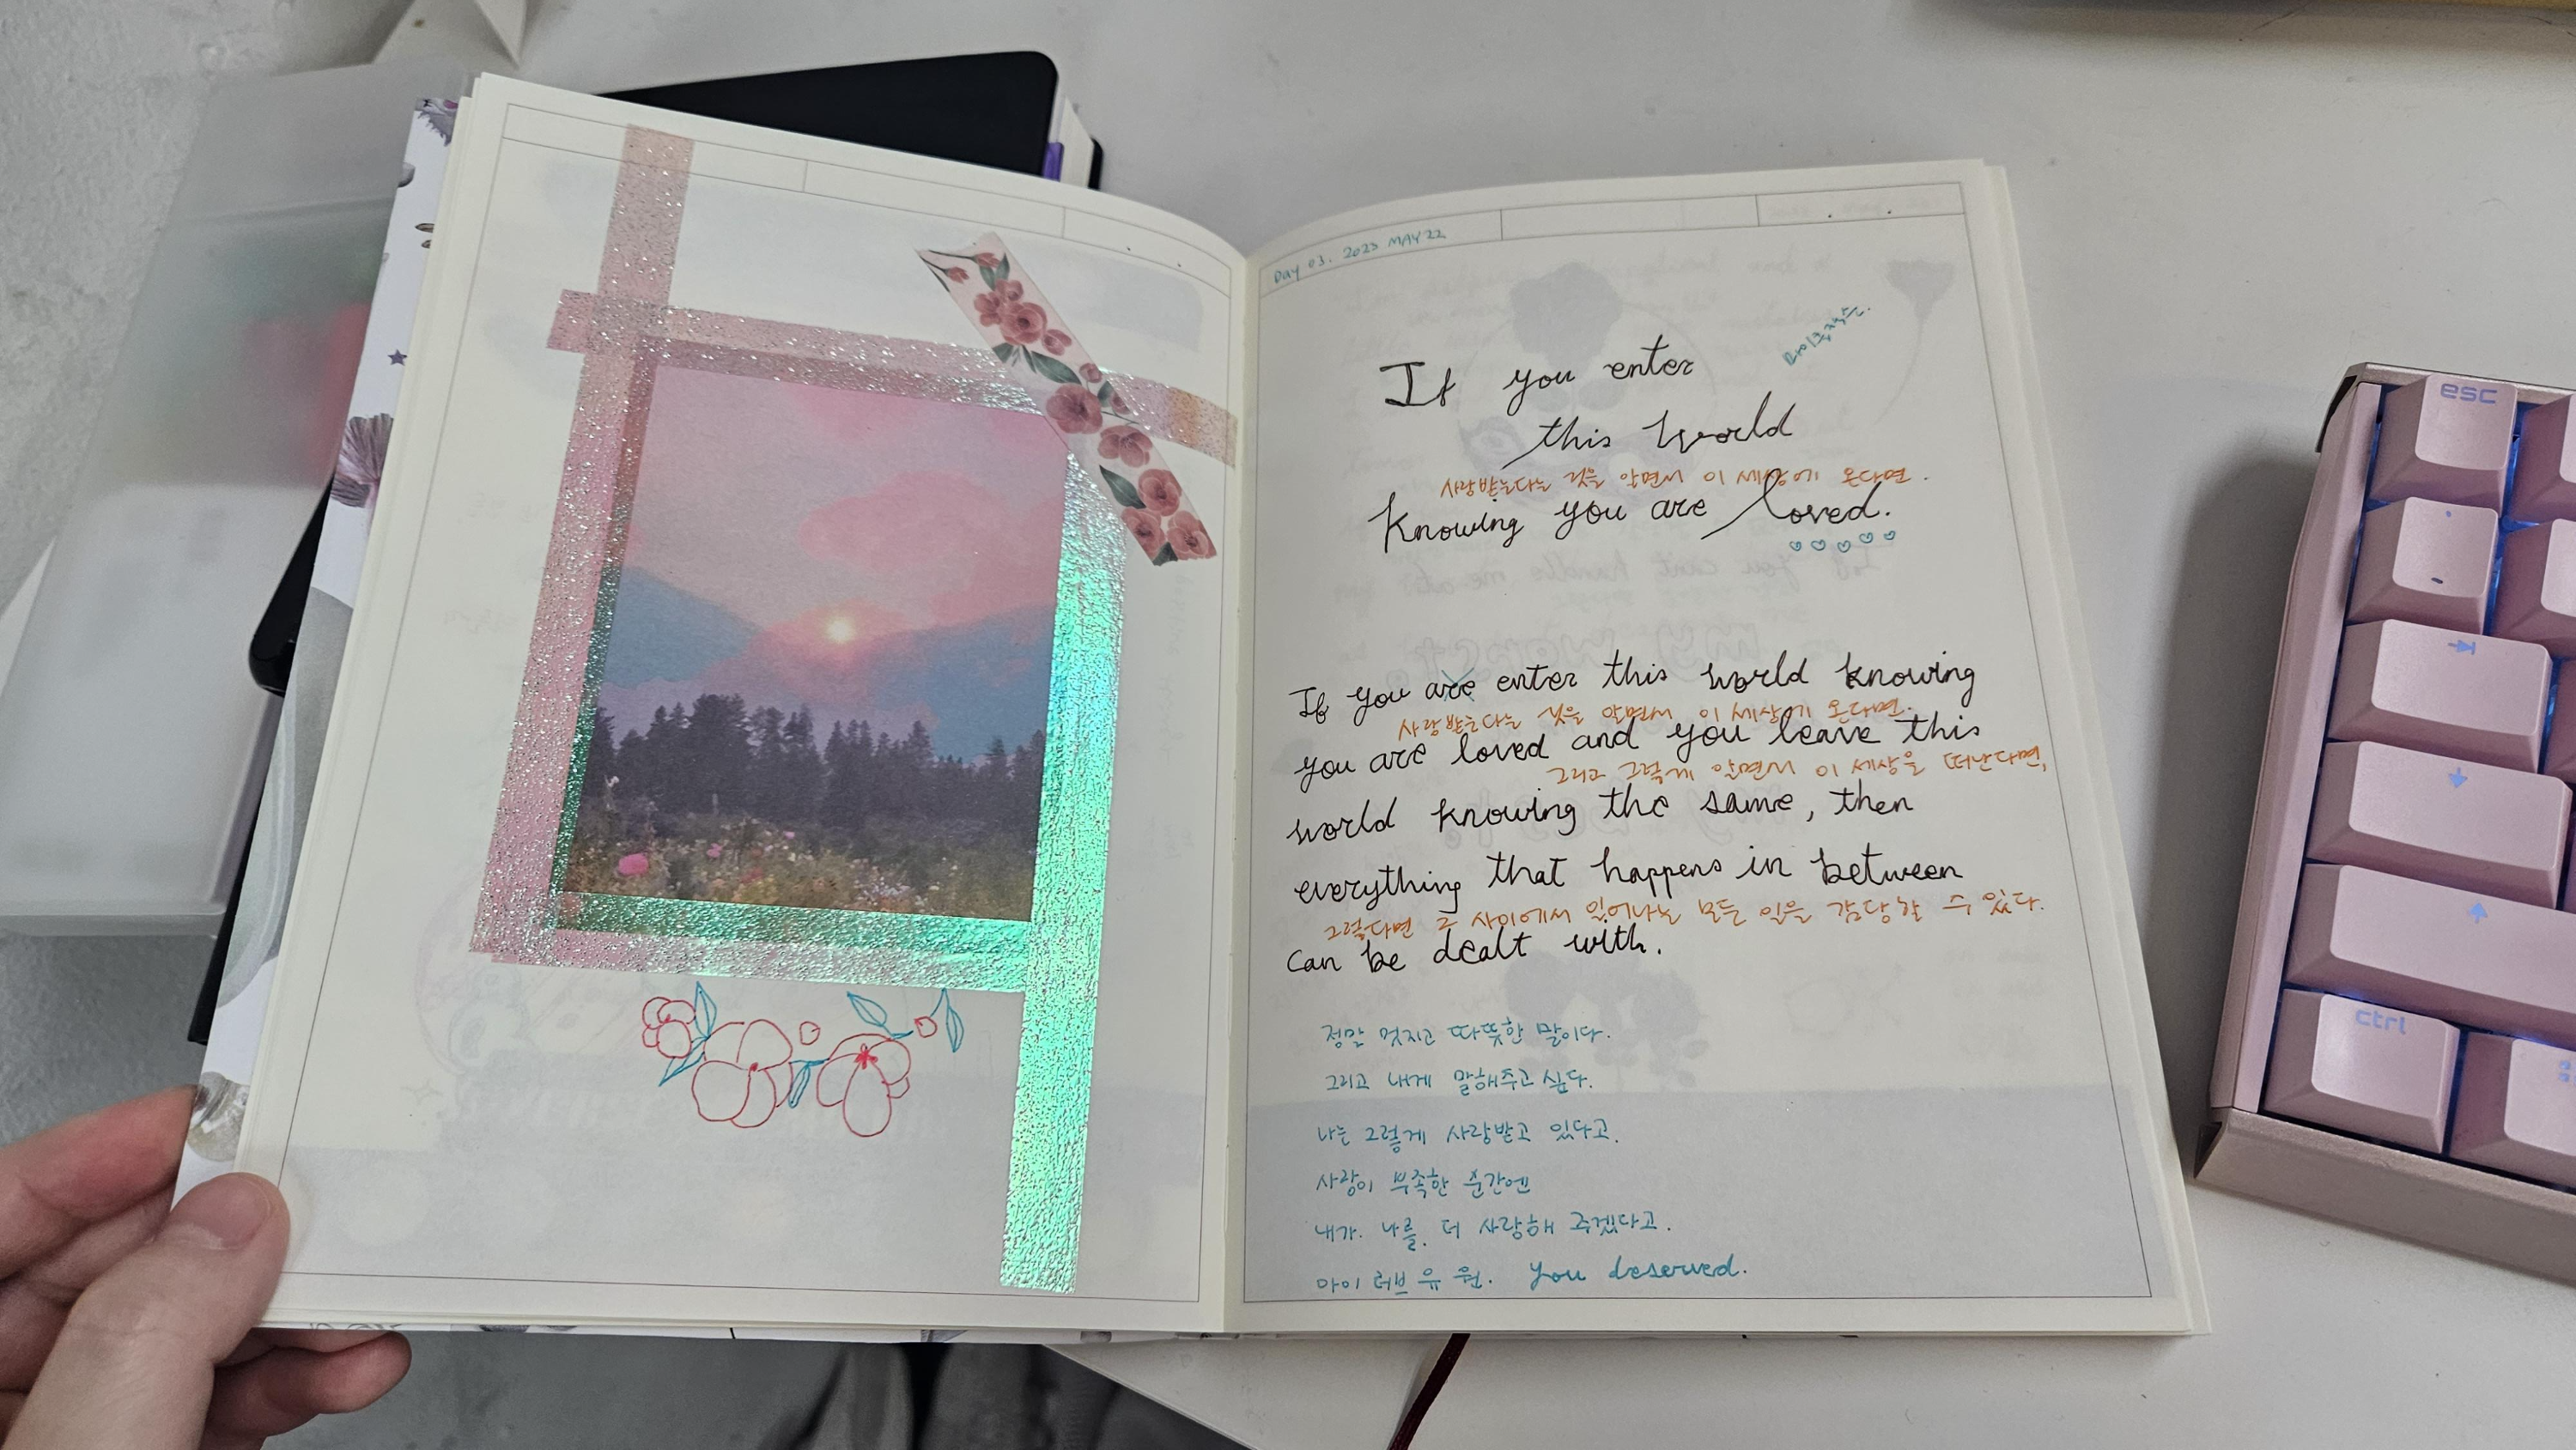 Day 03. 2023 MAY.22
마이클잭슨.
If you enter
this World
사랑받는다는 것을 알면서 이 세상에 온다면.
Knowing you are loved.
If you are enter this world knowing
사랑받는다는 것을 알면서 이 세상에 온다면.
you are loved and you leave this
그리고 그렇게 알면서 이 세상을 떠난다면,
world knowing the same, then
everything that happens in between
그렇다면 그 사이에서 일어나는 모든 일을 감당할 수 있다.
can be dealt with.
정말 멋지고 따뜻한 말이다.
그리고 내게 말해주고 싶다.
나는 그렇게 사랑받고 있다고.
사랑이 부족한 순간엔
내가 나를 더 사랑해 주겠다고.
아이 러브 유 원. you deserved.
esc
ctrl